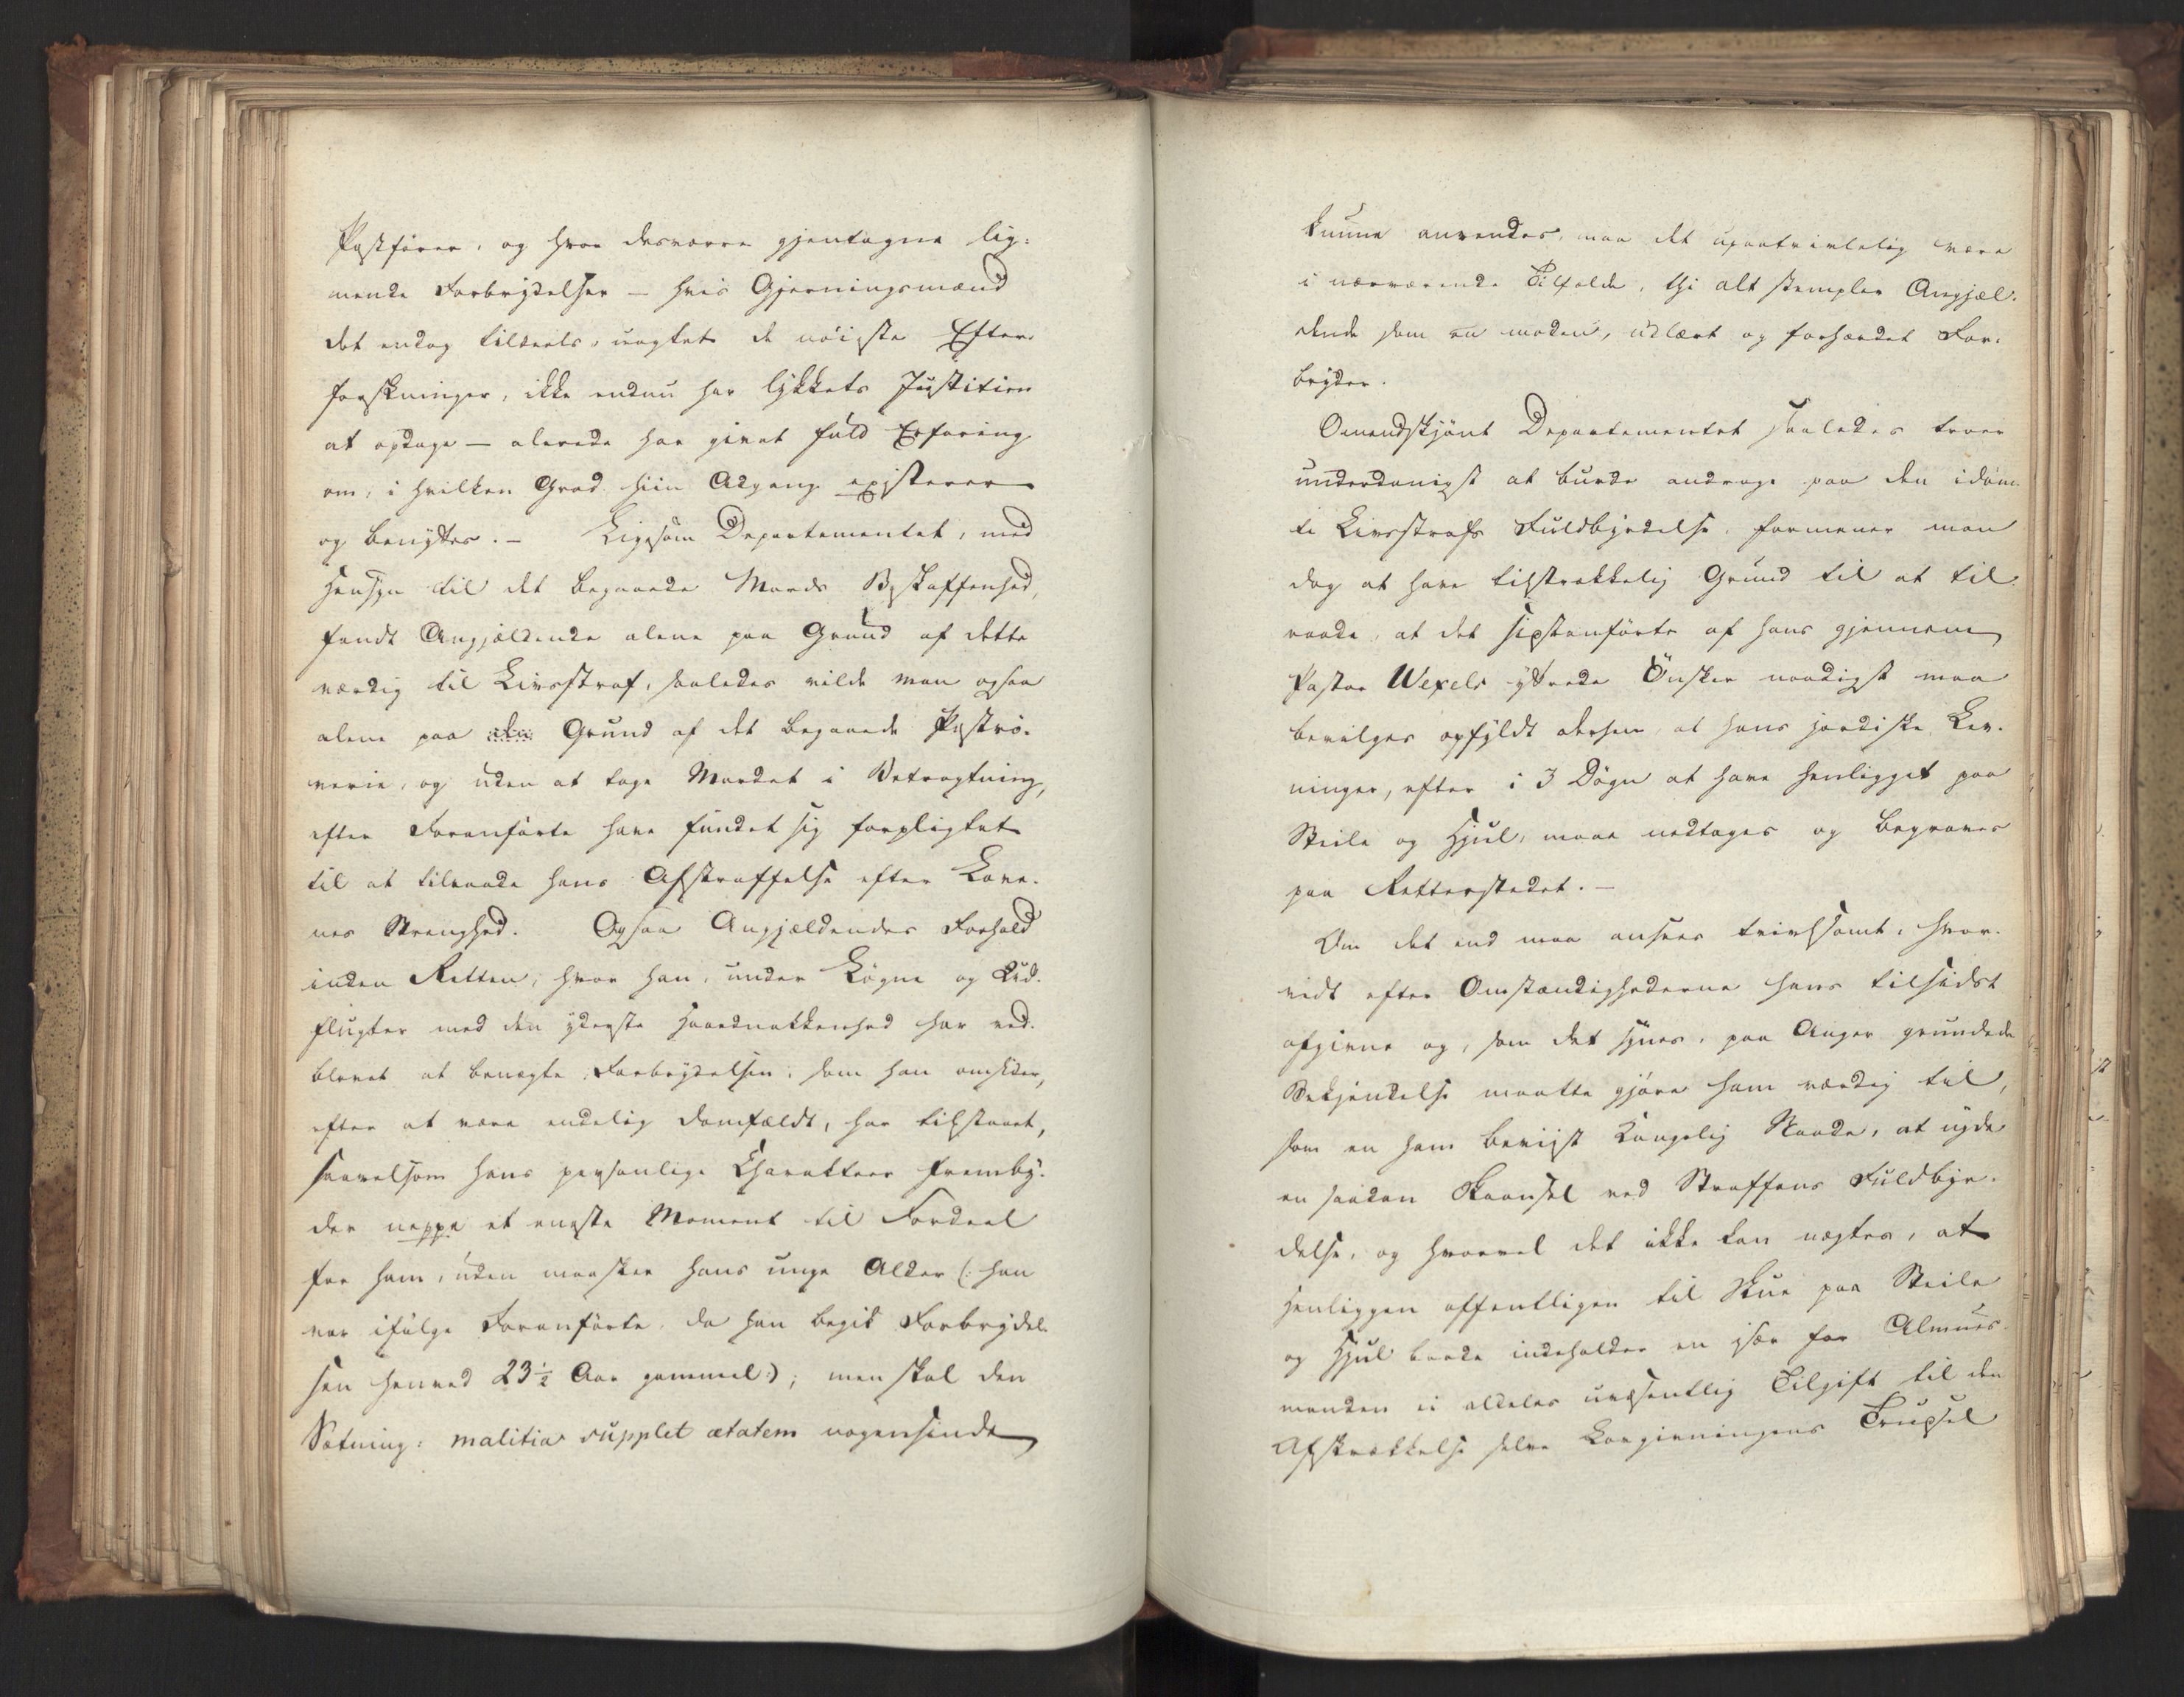 Postfører, og hvor desværre gjentagne lig-
nende Forbrydelser – hvis Gjerningsmænd
det endog tildeels, uagtet de nöieste Efter-
forskninger, ikke endnu har lykkets Justitien
at opdage – allerede har givet fuld Erfaring
om, i hvilken Grad hiin Adgang existerer
og benyttes. – Ligesom Departementet, med
Hensyn til det begaaede Mords Beskaffenhed,
fandt Angjældende alene paa Grund af dette
værdig til Livsstraf, saaledes vilde man ogsaa
alene paa den Grund af det begaaede Poströ-
verie, og uden at tage Mordet i Betragtning,
efter Foranförte have fundet sig forpligtet
til at tilraade hans Afstraffelse efter Love-
nes Strenghed. Ogsaa Angjældendes Forhold
inden Retten, hvor han, under Lögne og Ud-
flugter med den yderste Haardnakkenhed har ved-
blevet at benægte Forbrydelsen, som han omsider,
efter at være endelig domfældt, har tilstaaet,
saavelsom hans personlige Charakteer fremby-
der neppe et eneste Moment til Fordeel
for ham, uden maaskee hans unge Alder (: han
var ifølge Foranförte, da han begik Forbrydel-
sen henved 23½ Aar gammel :); men skal den
Sætning: malitia supplet ætatem nogensinde
kunne anvendes, maa det upaatvivlelig være
i nærværende Tilfælde, thi alt stempler Angjæl-
dende som en moden, udlært og forhærdet For-
bryder.
Omendskjönt Departementet saaledes troer
underdanigst at burde andrage paa den idöm-
te Livsstrafs Fuldbyrdelse, formener man
dog at have tilstrækkelig Grund til at til-
raade, at det sidstanförte af hans gjennem
Pastor Wexels yttrede Önsker naadigst maa
bevilges opfyldt derhen, at hans jordiske Lev-
ninger, efter i 3 Dögn at have henligget paa
Steile og Hjul, maae nedtages og begraves
paa Retterstedet. –
Om det end maa ansees tvivlsomt, hvor-
vidt efter Omstændighederne hans tilsidst
afgivne og, som det synes, paa Anger grundede
Bekjendelse maatte gjöre ham værdig til,
som en ham beviist Kongelig Naade, at nyde
en saadan Skaansel ved Straffens Fuldbyr-
delse, og hvorvel det ikke kan nægtes, at
Henliggen offentligen til Skue paa Steile
og Hjul baade indeholder en især for Almues-
manden ei aldeles uvæsentlig Tilgift til den
Afskrækkelse selve Lovgivningens Trudsel